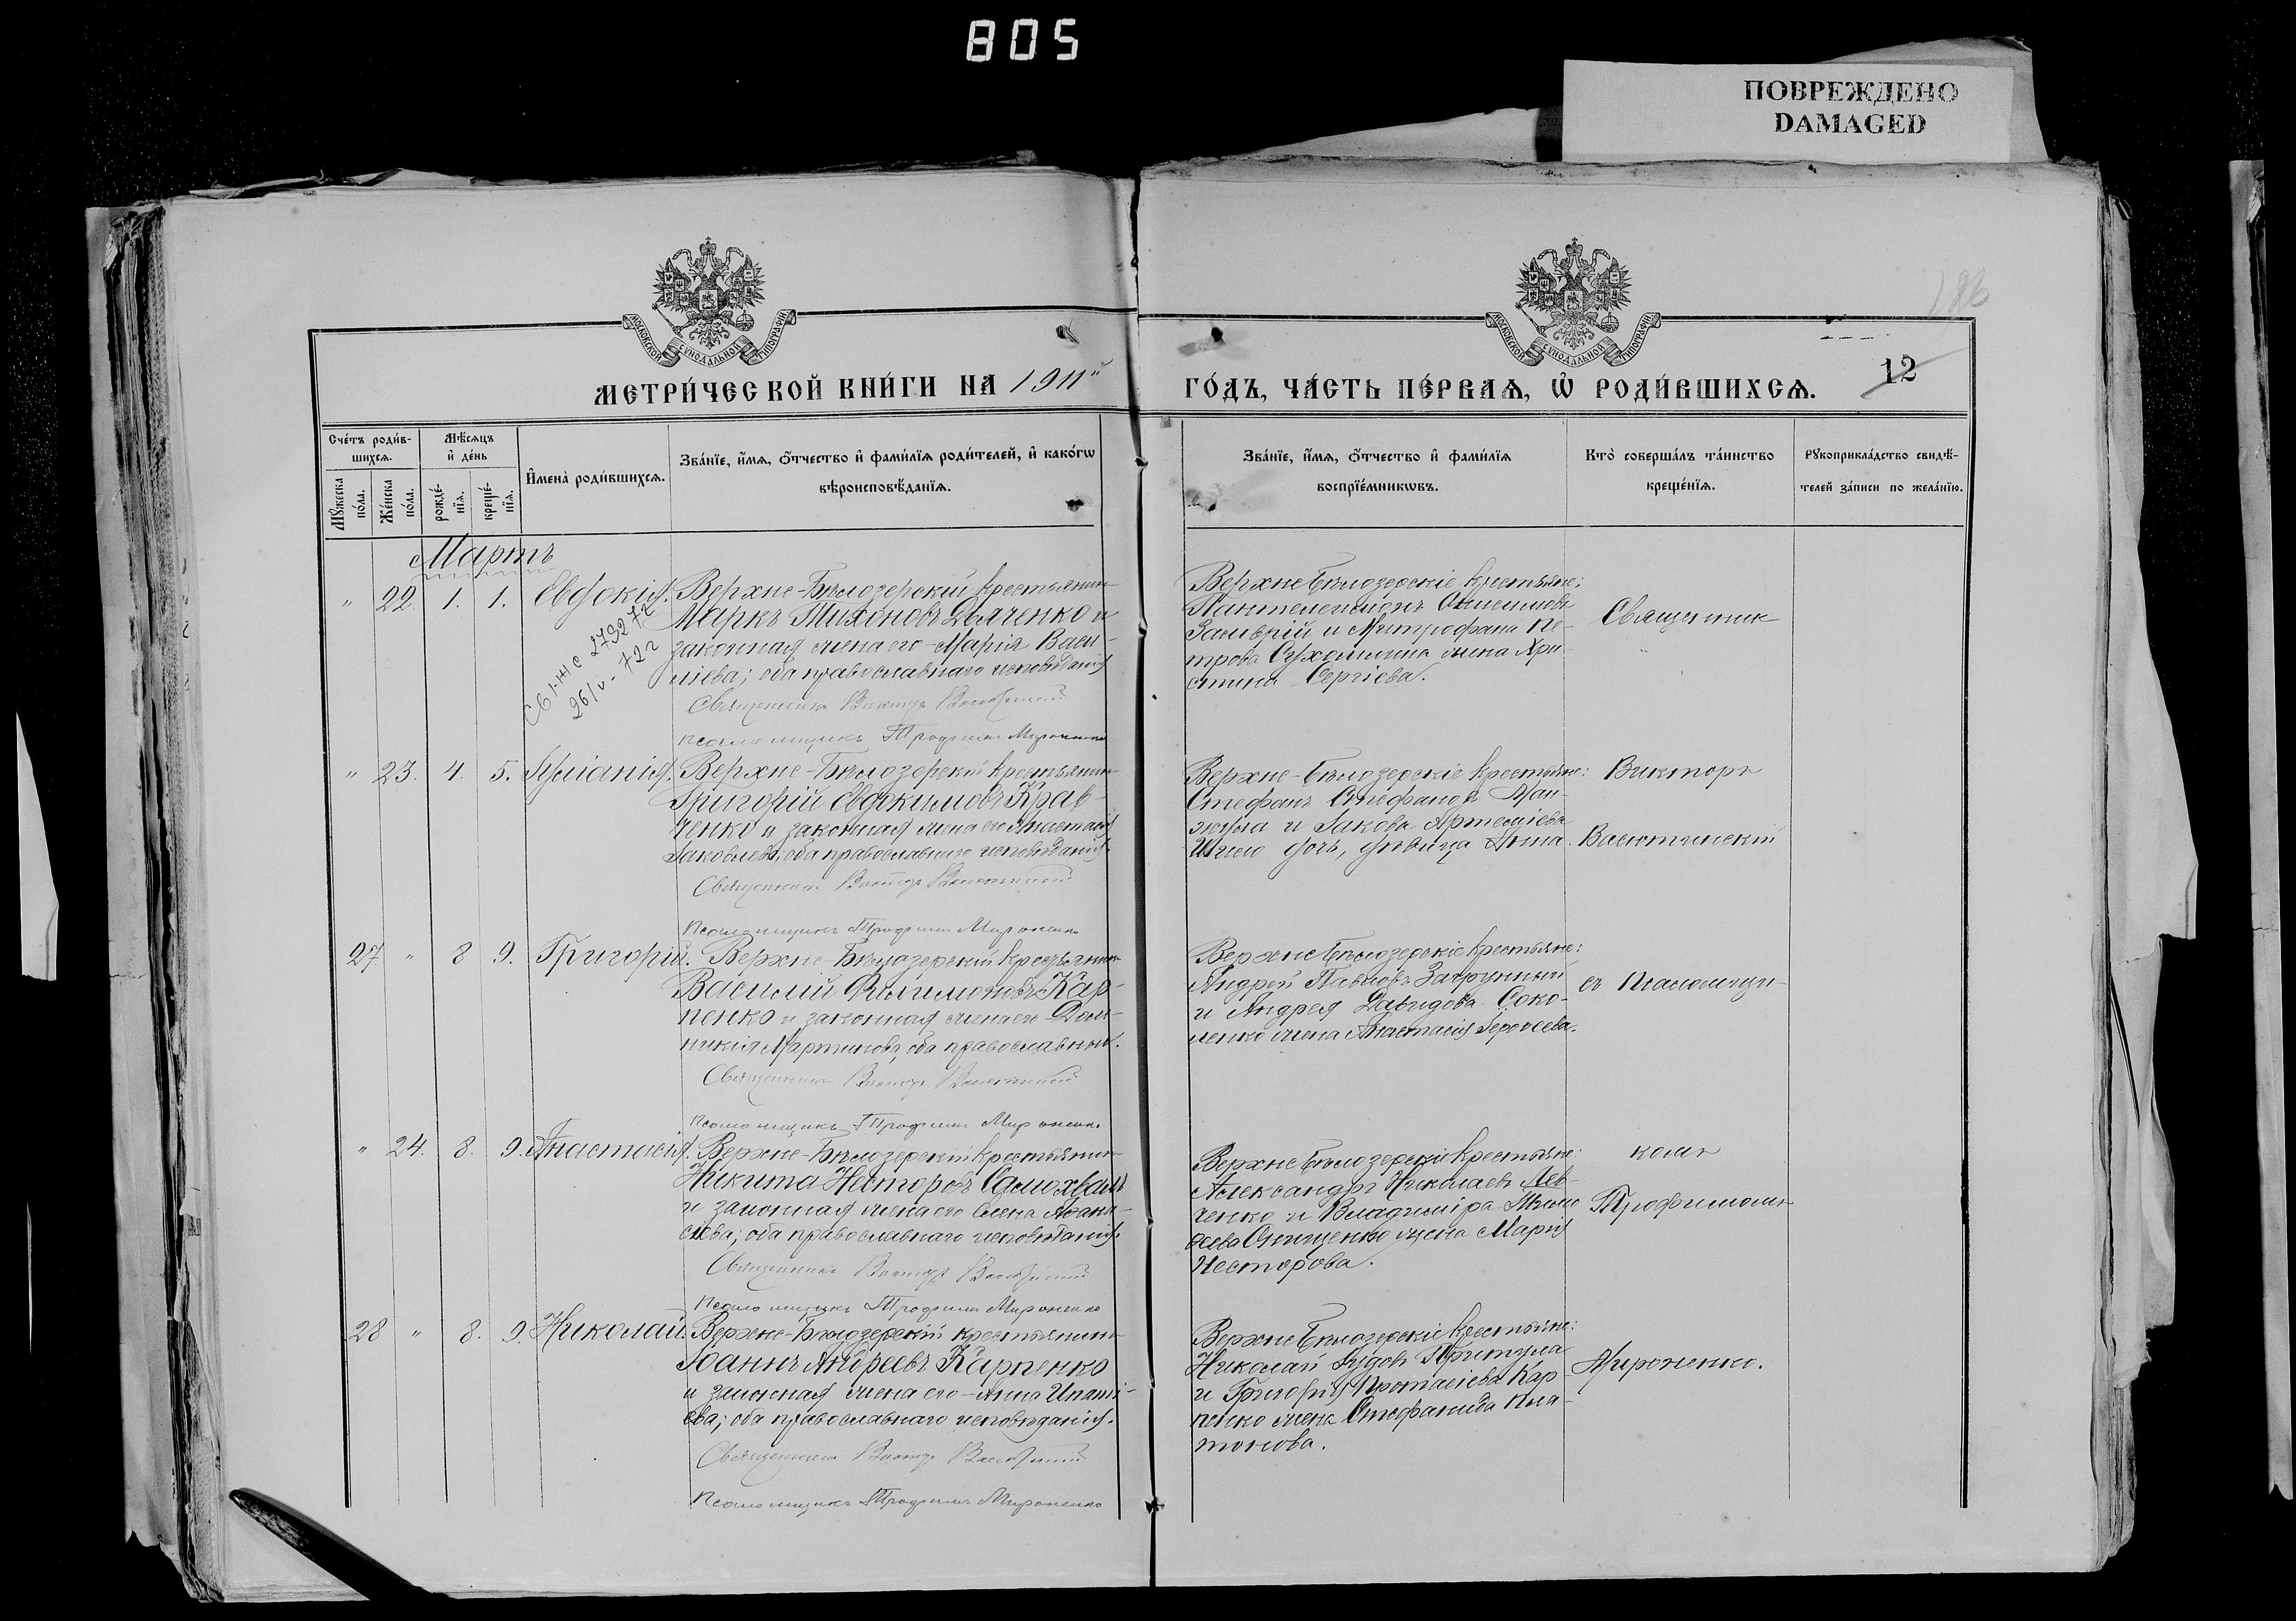 805
ПОВРЕЖДЕНО
DAMAGED
186
МОСКОВСКОЙ СУНОДАЛЬНОЙ ТИПОГРАФІИ
МОСКОВСКОЙ СУНОДАЛЬНОЙ ТИПОГРАФІИ
12
МЕТРИ́ЧЕСКОЙ КНИ́ГИ НА 1911й
ГО́ДЪ, ЧА́СТЬ ПЕ́РВАЯ, Ѡ҆ РОДИ́ВШИХСѦ.
Сче́тъ роди́в-
шихсѧ.
Мꙋ́жеска
по́ла.
Же́нска
по́ла.
Мѣ́сѧцъ
и҆ де́нь
рожде́-
нїѧ.
креще́-
нїѧ.
И҆мена̀ роди́вшихсѧ.
Зва́нїе, и҆́мѧ, ѻ҆́тчество и҆ фами́лїѧ роди́телей, и҆ како́гѡ
вѣроисповѣ́данїѧ.
Зва́нїе, и҆́мѧ, ѻ҆́тчество и҆ фами́лїѧ
воспрїе́мникѡвъ.
Кто̀ соверша́лъ та́инство
креще́нїѧ.
Рꙋкоприкла́дство свидѣ́-
телей за́писи по жела́нїю.
Мартъ
" 22. 1. 1. Евдокія. Верхне-Бѣлозерскій крестьянинъ
Маркъ Тихоновъ Дяченко и
законная жена его Марія Васи-
ліева; оба православнаго исповѣданія
Священникъ Викторъ Васютинскій
Псаломщикъ Трофимъ Мироненко
2732 72
26/V - 72 г
Верхне Бѣлозерскіе крестьяне:
Пантелеимонъ Онисимовъ
и Митрофана Пе-
трова жена Хри-
стина Сергіева.
Священник
" 23. 4. 5. Іуліанія. Верхне-Бѣлозерскій крестьянинъ
Григорій Евдокимовъ Крав-
ченко и законная жена его Анастасія
Іаковлева, оба православнаго исповѣданія.
Священникъ Викторъ Васютинскій
Псаломщикъ Трофимъ Мироненко
Верхне-Бѣлозерскіе крестьяне:
Стефанъ Стефановъ Ман-
жула и Іакова Артеміева
дочь, дѣвица Анна.
Викторъ
Васютинскій
27. " 8 9. Григорій. Верхне-Бѣлозерскій крестьянинъ
Василій Филимоновъ Кар-
пенко и законная жена его Дом-
никія Мартинова, оба православные.
Священникъ Викторъ Васютинскій
Псаломщикъ Трофимъ Мироненко
Верхне Бѣлозерскіе крестьяне:
Андрей Павловъ
и Андрея Давидова Соко-
ленко жена Анастасія Іерофеева.
съ Псаломщи-
" 24. 8. 9. Анастасія. Верхне-Бѣлозерскій крестьянинъ
Никита Несторовъ Самохвалъ
и законная жена его Елена Афана-
сіева; оба православнаго исповѣданія.
Священникъ Викторъ Васютинскій
Псаломщикъ Трофимъ Мироненко
Верхне Бѣлозерскіе крестьяне:
Александръ Николаевъ Лев-
ченко и Владиміра Тимо
феева Онищенко жена Марія
Несторова.
комъ
Трофимомъ
28 " 8. 9. Николай. Верхне-Бѣлозерскій крестьянинъ
Іоаннъ Андреевъ Карпенко
и законная жена его - Анна Ипаті-
ева; оба православнаго исповѣданія.
Священникъ Викторъ Васютинскій
Псаломщикъ Трофимъ Мироненко
Верхне Бѣлозерскіе крестьяне:
Николай Іудовъ Притула
и Григорія Протасіева Кар-
пенко жена Стефанида Пла-
тонова.
Мироненко.